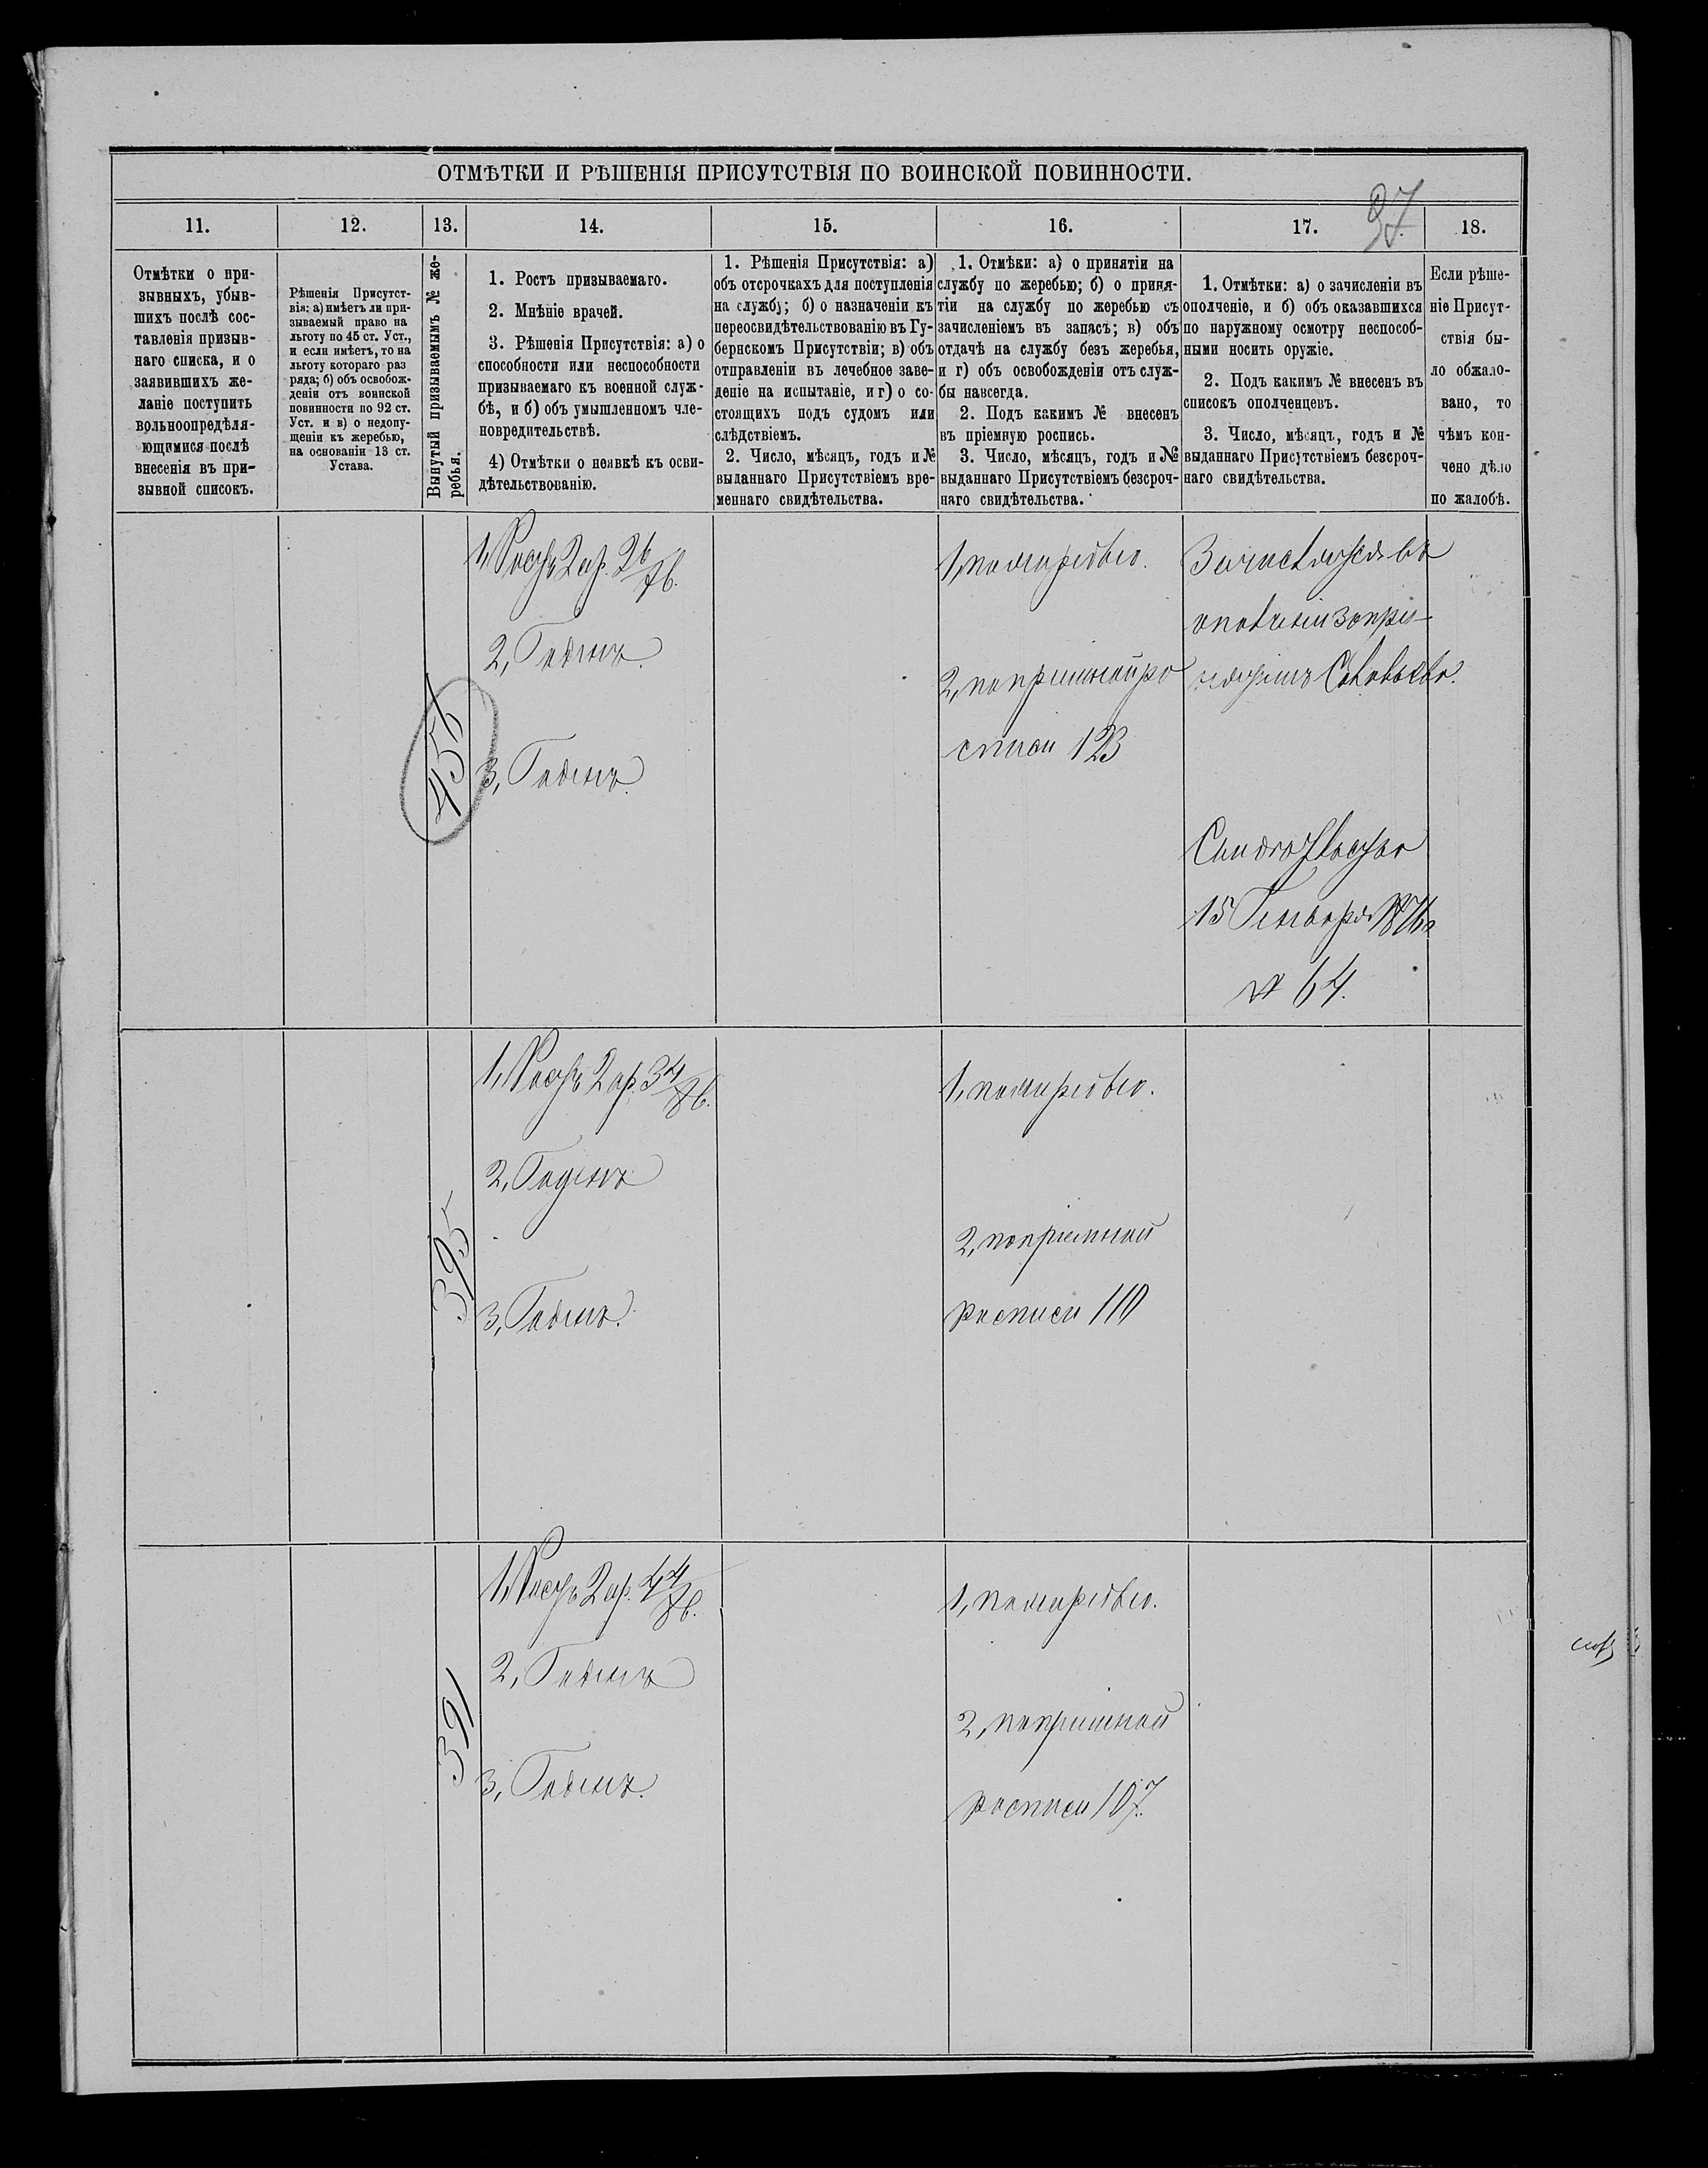 ОТМѢТКИ И РѢШЕНІЯ ПРИСУТСТВІЯ ПО ВОИНСКОЙ ПОВИННОСТИ.
37
11.
12.
13.
14.
15.
16.
17.
18.
Отмѣтки о при-
зывныхъ, убыв-
шихъ послѣ сос-
тавленія призыв-
наго списка, и о
заявившихъ же-
ланіе поступить
вольноопредѣля-
ющимися послѣ
внесенія въ при-
зывной списокъ.
Рѣшенія Присутст-
вія: а) имѣетъ ли при-
зываемый право на
льготу по 45 ст. Уст.,
и если имѣетъ, то на
льготу котораго раз
ряда; б) объ освобож-
деніи отъ воинской
повинности по 92 ст.
Уст. и в) о недопу-
щеніи къ жеребью,
на основаніи 13 ст.
Устава.
Вынутый призываемымъ № же-
ребья.
1. Ростъ призываемаго.
2. Мнѣніе врачей.
3. Рѣшенія Присутствія: а) о
способности или неспособности
призываемаго къ военной служ-
бѣ, и б) объ умышленномъ чле-
новредительствѣ.
4) Отмѣтки о неявкѣ къ осви-
дѣтельствованію.
1. Рѣшенія Присутствія: а)
объ отсрочкахъ для поступленія
на службу; б) о назначеніи къ
переосвидѣтельствованію въ Гу-
бернскомъ Присутствіи; в) объ
отправленіи въ лечебное заве-
деніе на испытаніе, и г) о со-
стоящихъ подъ судомъ или
слѣдствіемъ.
2. Число, мѣсяцъ, годъ и №
выданнаго Присутствіемъ вре-
меннаго свидѣтельства.
1. Отмѣки: а) о принятіи на
службу по жеребью; б) о приня-
тіи на службу по жеребью съ
зачисленіемъ въ запасъ; в) объ
отдачѣ на службу безъ жеребья,
и г) объ освобожденіи отъ служ-
бы навсегда.
2. Подъ какимъ № внесенъ
въ пріемную роспись.
3. Число, мѣсяцъ, годъ и №
выданнаго Присутствіемъ безсроч-
наго свидѣтельства.
1. Отмѣтки: а) о зачисленіи въ
ополченіе, и б) объ оказавшихся
по наружному осмотру неспособ-
ными носить оружіе.
2. Подъ какимъ № внесенъ въ
списокъ ополченцевъ.
3. Число, мѣсяцъ, годъ и №
выданнаго Присутствіемъ безсроч-
наго свидѣтельства.
Если рѣше-
ніе Присут-
ствія бы-
ло обжало-
вано, то
чѣмъ кон-
чено дѣло
по жалобѣ.
455
1, Ростъ 2 ар. 2 6/8 в.
2, Годенъ.
3, Годенъ.
1, по жеребью.
2, по пріемной ро
списи 123
Зачисляется въ
ополченіи
15 Генваря 1876 г
№ 64.
395
1, Ростъ 2 ар. 3 4/8 в.
2, Годенъ
3, Годенъ.
1, по жеребью.
2, по пріемной
росписи 110
391
1, Ростъ 2 ар. 4 4/8 в.
2, Годенъ
3, Годенъ.
1, по жеребью.
2, по пріемной
росписи 107.